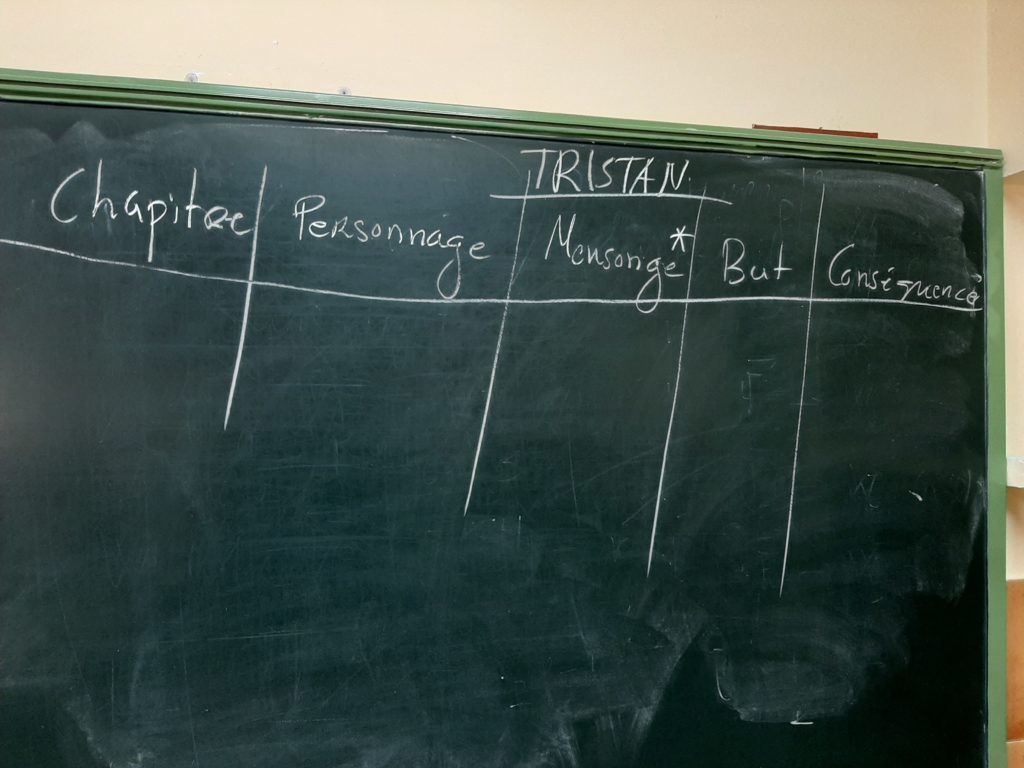 TRISTAN
Chapitre Personnage Mensonge* But Conséquence